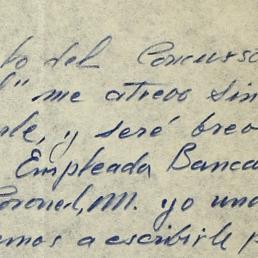 to del Concurso
" me atrevo sin
te, y seré brev
Empleada Banca
Coronel, M. yo una
mos a escribirle p